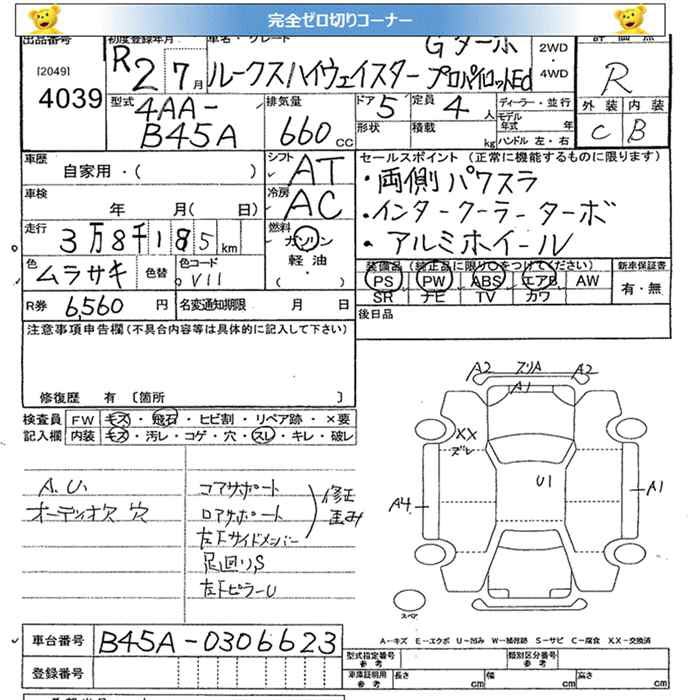 完全ゼロ切りコーナー
出品番号
[2049]
4039
初度登録年月
R2 7月
車名・グレード
Gターボ
ルークスハイウェイスター プロパイロットEd
2WD
・
4WD
評価点
R
外装 内装
C B
型式
4AA-
B45A
排気量
660 CC
ドア 5
形状
定員 4 人
積載 kg
ディーラー・並行
モデル年式 年
ハンドル 左・右
車歴
自家用・( )
シフト AT
車検
年 月( 日)
冷房 AC
走行
3万8千185km
燃料
ガソリン
軽油
( )
色
ムラサキ
色替
色コード
V11
R券 6,560円
名変通知期限 月 日
セールスポイント (正常に機能するものに限ります)
・両側パワスラ
・インタークーラーターボ
・アルミホイール
装備品 (純正品に限り○をつけてください)
PS PW ABS エアB AW
SR ナビ TV カワ
新車保証書
有・無
後日品
注意事項申告欄(不具合内容等は具体的に記入して下さい)
修復歴 有 〔箇所 〕
検査員 FW キズ・飛石・ヒビ割・リペア跡・×要
記入欄 内装 キズ・汚レ・コゲ・穴・スレ・キレ・破レ
A.U.
オーディオ欠 穴
コアサポート
ロアサポート
左Fサイドメンバー
修正
歪み
足回りS
左FピラーU
A2 A2
A1
XX
ズレ
U1
A4
A1
スペア
A-キズ E-エクボ U-凹み W-補修跡 S-サビ C-腐食 XX-交換済
車台番号 B45A-0306623
登録番号
型式指定番号 参考
類別区分番号 参考
車庫証明用 参考
長さ cm
幅 cm
高さ cm